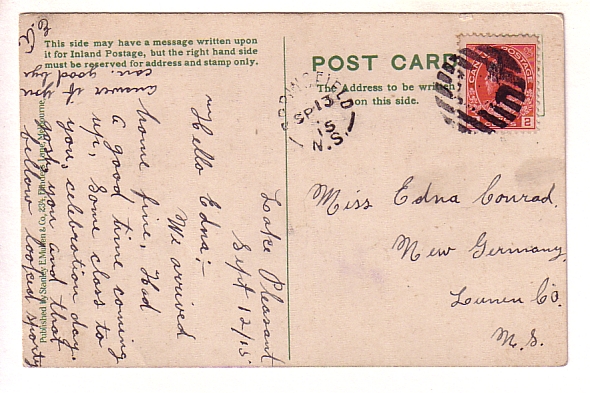 This side may have a message written upon
it for Inland Postage, but the right hand side
must be reserved for address and stamp only.
POST CARD
The Address to be written
on this side.
SPRINGFIELD
SP 13
15
N.S.
CANADA POSTAGE
2
Lake Pleasant
Sept 12/15
Hello Edna:-
We arrived
home fine, Had
a good time coming
up, Some class to
you, celebration day,
you and that
fellow looked sporty
answer if you
can. good bye
Miss Edna Conrad.
New Germany
Lunen Co.
N.S.
Published by Stanley E. Mullen & Co., Melbourne